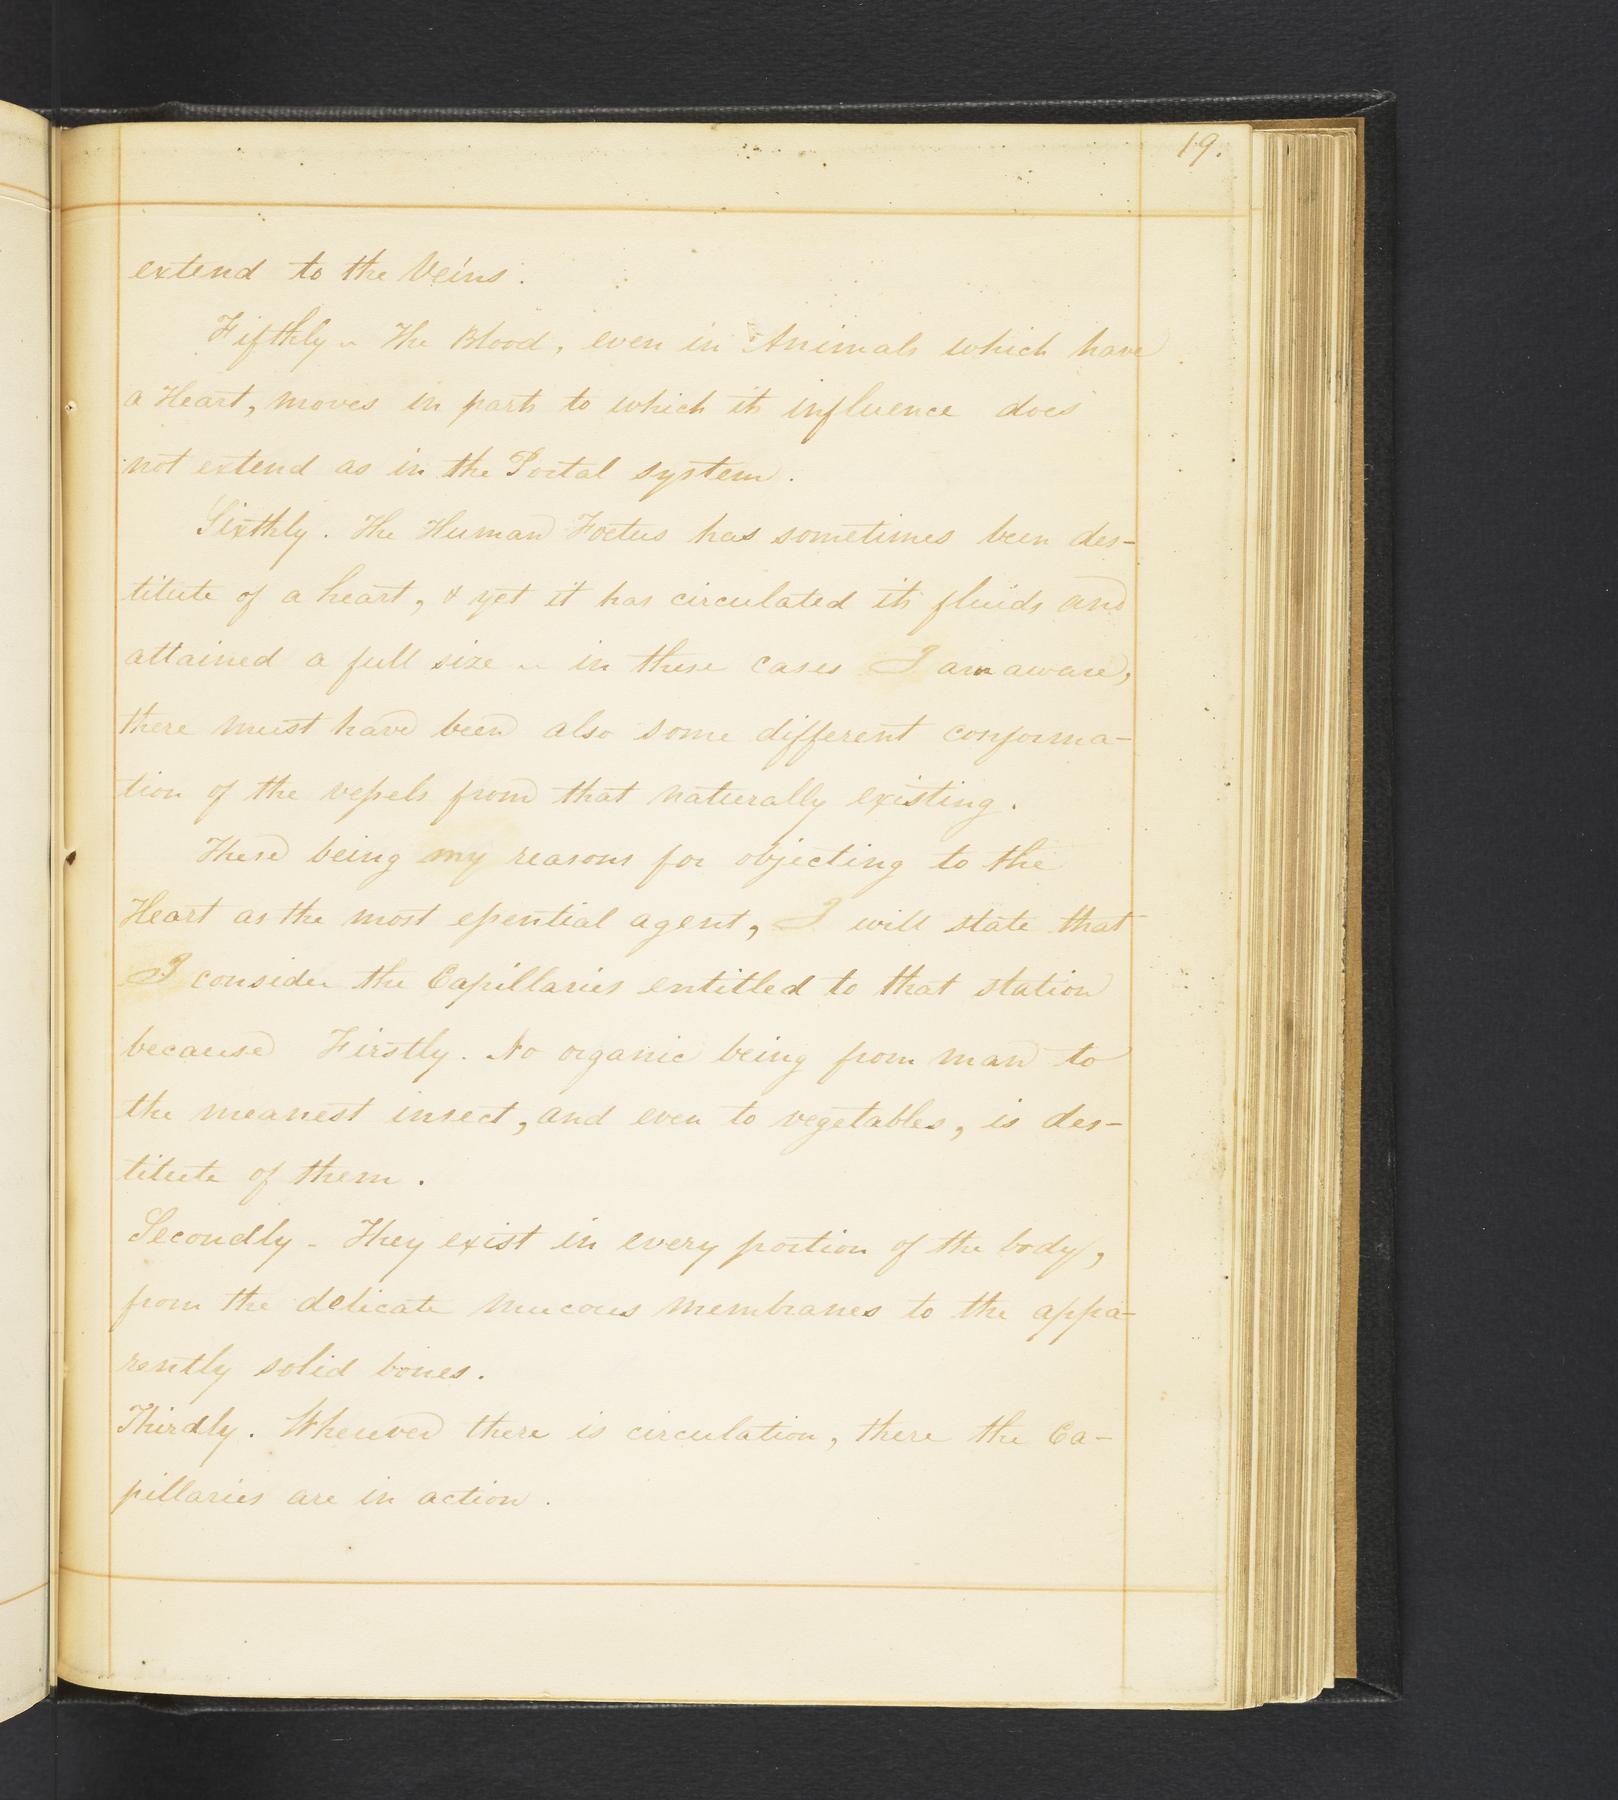 19.
extend to the Veins.
Fifthly - The Blood, even in Animals which have
a Heart, moves in parts to which its influence does
not extend as in the Portal system.
Sixthly. The Human Foetus has sometimes been des-
titute of a heart, & yet it has circulated its fluids and
attained a full size - in these cases I am aware,
there must have been also some different conforma-
tion of the vessels from that naturally existing.
These being my reasons for objecting to the
Heart as the most essential agent, I will state that
I consider the Capillaries entitled to that station
because Firstly. No organic being from man to
the meanest insect, and even to vegetables, is des-
titute of them.
Secondly - They exist in every portion of the body,
from the delicate mucous membranes to the appa-
rently solid bones.
Thirdly. Wherever there is circulation, there the Ca-
pillaries are in action.